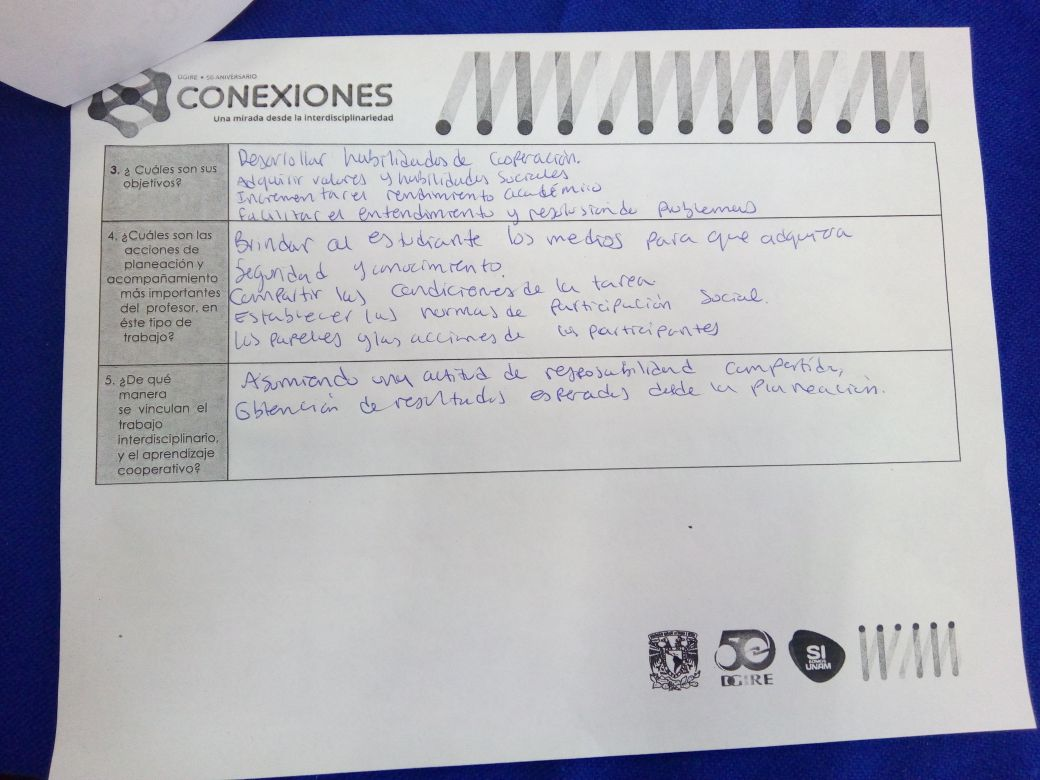 DGIRE • 50 ANIVERSARIO
CONEXIONES
Una mirada desde la interdisciplinariedad
3. ¿ Cuáles son sus
objetivos?
Desarrollar habilidades de cooperación.
Adquirir valores y habilidades sociales
Incrementar el rendimiento académico
Facilitar el entendimiento y resolusion de problemas
4. ¿Cuáles son las
acciones de
planeación y
acompañamiento
más importantes
del profesor, en
éste tipo de
trabajo?
Brindar al estudiante los medios para que adquiera
Seguridad y conocimiento.
Compartir las condiciones de la tarea
Establecer las normas de participación social.
Los papeles y las acciones de los participantes
5. ¿De qué
manera
se vinculan el
trabajo
interdisciplinario,
y el aprendizaje
cooperativo?
Asumiendo una actitud de resposabilidad compartida,
Obtención de resultados esperados desde la planeación.
50
DGIRE
SI
SOMOS
UNAM